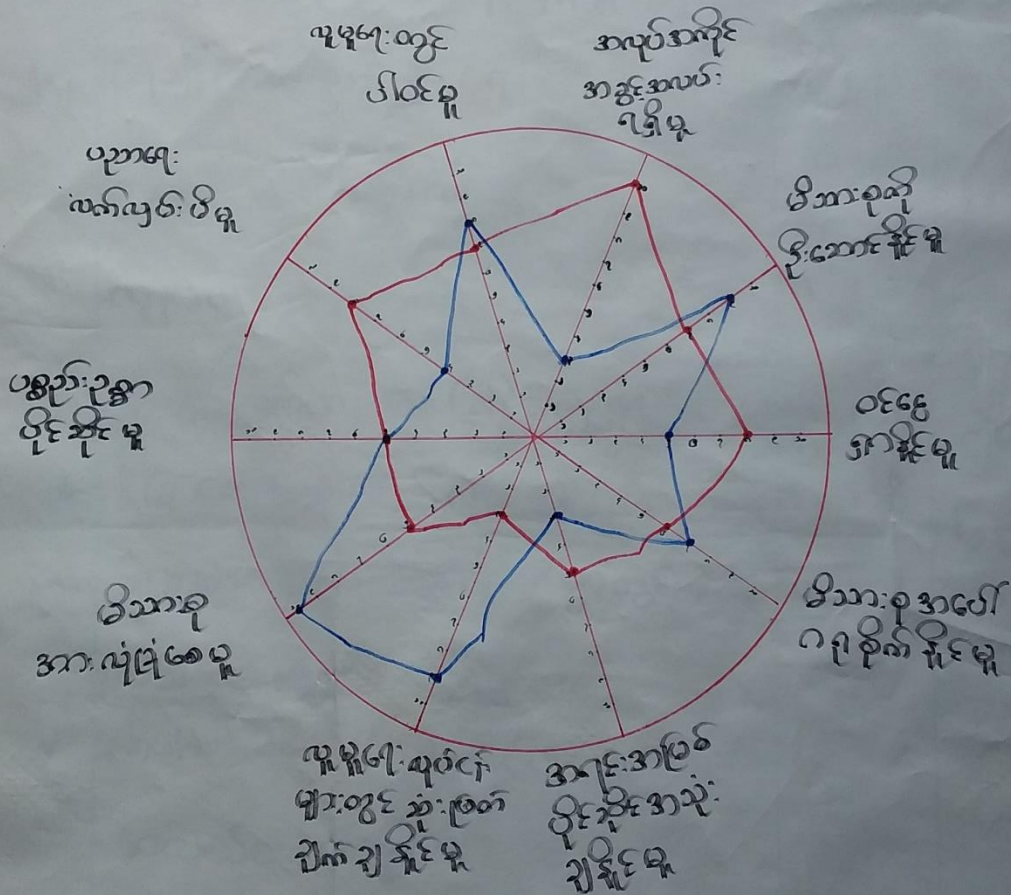 လူမူရေးတွင်
ပါဝင်မှု
အလုပ်အကိုင်
အခွင့်အလမ်း
ရရှိမှု
မိသားစုကို
ဦးဆောင်နိုင်မှု
ဝင်ငွေ
ရှာနိုင်မှု
မိသားစုအပေါ်
ဂရုစိုက်နိုင်မှု
အရင်းအမြစ်
ပိုင်ဆိုင်အသုံး
ချနိုင်မှု
လူမှုရေးလုပ်ငန်း
များတွင် ဆုံးဖြတ်
ချက်ချနိုင်မှု
မိသားစု
အားလုံခြုံစေမှု
ပစ္စည်းဥစ္စာ
ပိုင်ဆိုင်မှု
ပညာရေး
လက်လှမ်းမီမှု